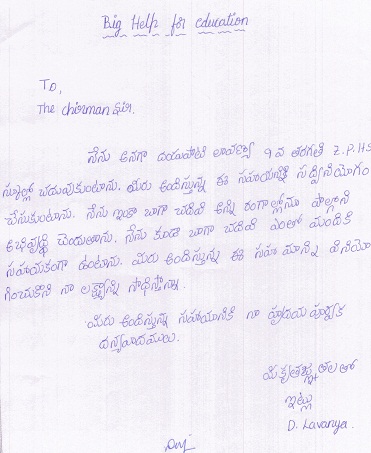 Big Help for education
To,
The chirman గారి.
నేను అనగా దయపాటి లావణ్య 9 వ తరగతి Z.P.H.S
స్కూల్లో చదువుకుంటాను. మీరు అందిస్తున్న ఈ సహాయన్ని సద్వినియోగం
చేసుకుంటాను. నేను ఇంకా బాగా చదివి అన్ని రంగాల్లోను పాల్గొని
అభివృద్ధి చెందుతాను. నేను కూడా బాగా చదివి ఎంతో మందికి
సహాయకంగా ఉంటాను. మీరు అందిస్తున్న ఈ సహాయాన్ని వినియో
గించుకొని నా లక్ష్యాన్ని సాధిస్తాను.
మీరు అందిస్తున్న సహాయానికి నా హృదయ పూర్వక
ధన్యవాదములు.
మీ కృతజ్ఞతలతో
ఇట్లు
D. Lavanya.